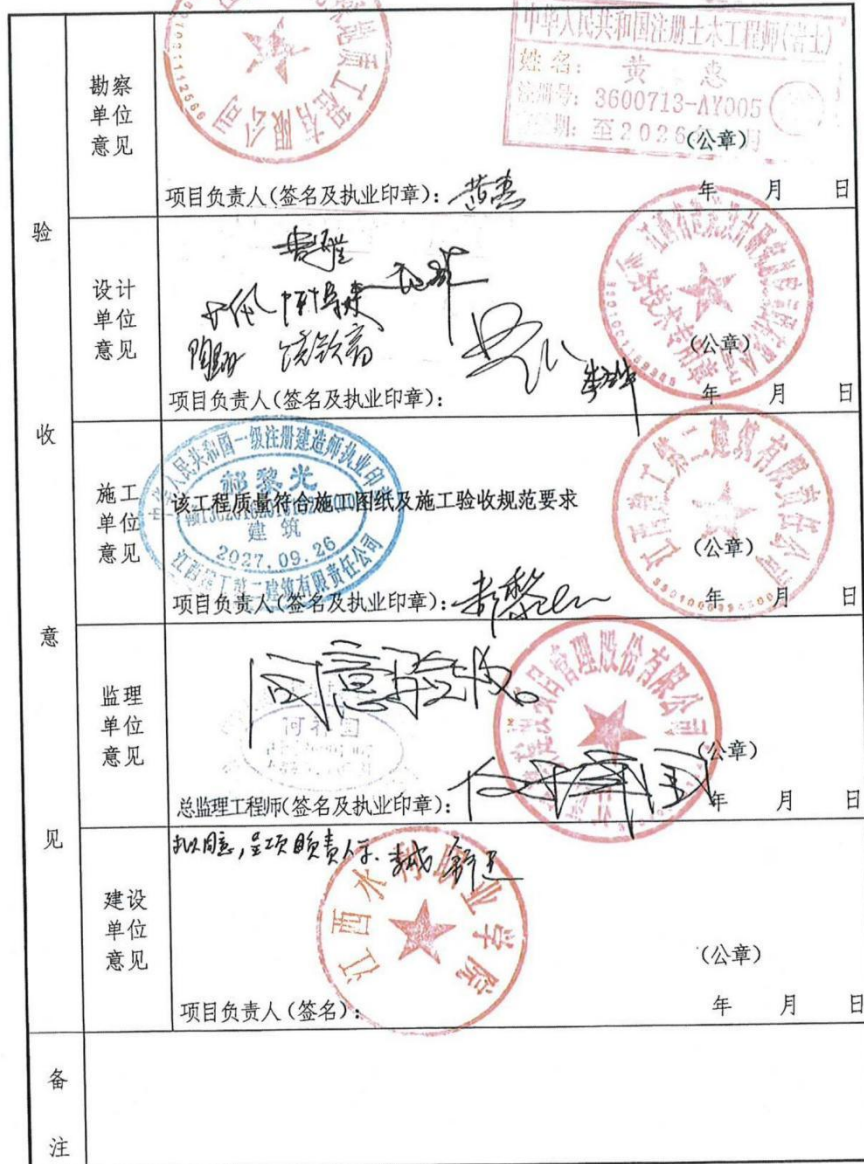 验收意见
勘察单位意见
地质工程有限公司
中华人民共和国注册土木工程师(岩土)
姓名: 黄惠
注册号: 3600713-AY005
(公章)
项目负责人(签名及执业印章): 黄惠
年 月 日
设计单位意见
(公章)
项目负责人(签名及执业印章):
年 月 日
施工单位意见
中华人民共和国一级注册建造师执业印章
郝黎光
建筑
2027.09.26
江西建工第二建筑有限责任公司
该工程质量符合施工图纸及施工验收规范要求
江西建工第二建筑有限责任公司
(公章)
项目负责人(签名及执业印章):
年 月 日
监理单位意见
同意验收。
项目管理股份有限公司
(公章)
总监理工程师(签名及执业印章):
年 月 日
建设单位意见
江西水利职业学院
(公章)
项目负责人(签名):
年 月 日
备注